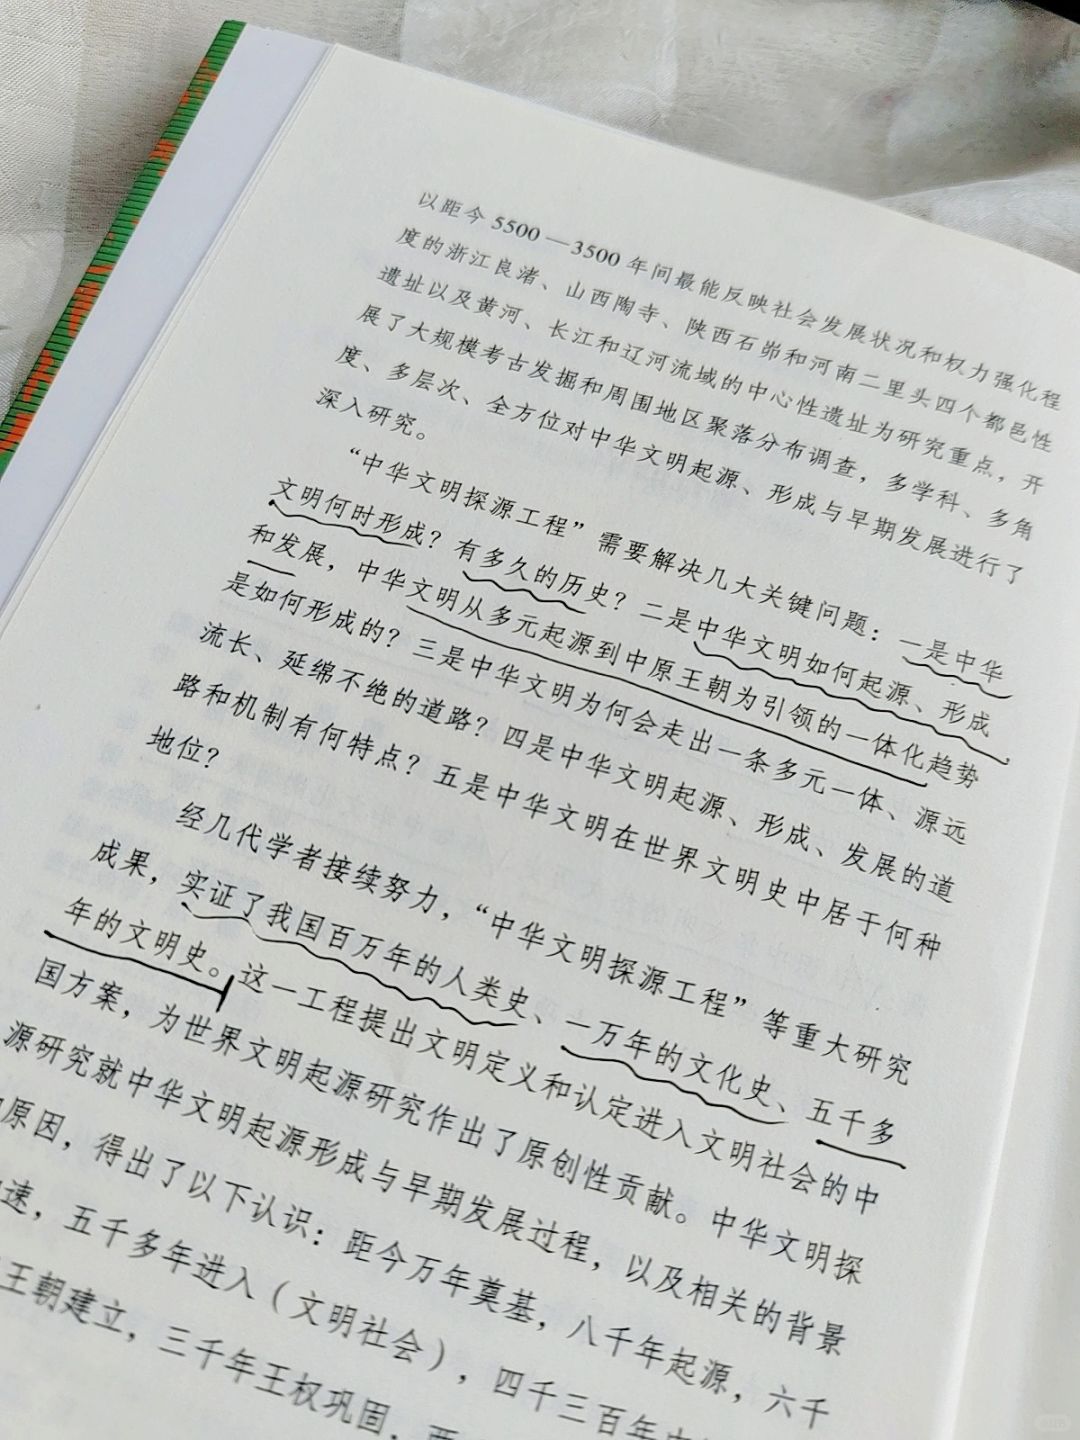 以距今 5500—3500 年间最能反映社会发展状况和权力强化程
度的浙江良渚、山西陶寺、陕西石峁和河南二里头四个都邑性
遗址以及黄河、长江和辽河流域的中心性遗址为研究重点，开
展了大规模考古发掘和周围地区聚落分布调查，多学科、多角
度、多层次、全方位对中华文明起源、形成与早期发展进行了
深入研究。
“中华文明探源工程”需要解决几大关键问题：一是中华
文明何时形成？有多久的历史？二是中华文明如何起源、形成
和发展，中华文明从多元起源到中原王朝为引领的一体化趋势
是如何形成的？三是中华文明为何会走出一条多元一体、源远
流长、延绵不绝的道路？四是中华文明起源、形成、发展的道
路和机制有何特点？五是中华文明在世界文明史中居于何种
地位？
经几代学者接续努力，“中华文明探源工程”等重大研究
成果，实证了我国百万年的人类史、一万年的文化史、五千多
年的文明史。这一工程提出文明定义和认定进入文明社会的中
国方案，为世界文明起源研究作出了原创性贡献。中华文明探
源研究就中华文明起源形成与早期发展过程，以及相关的背景
原因，得出了以下认识：距今万年奠基，八千年起源，六千
速，五千多年进入（文明社会），四千三百年
王朝建立，三千年王权巩固，